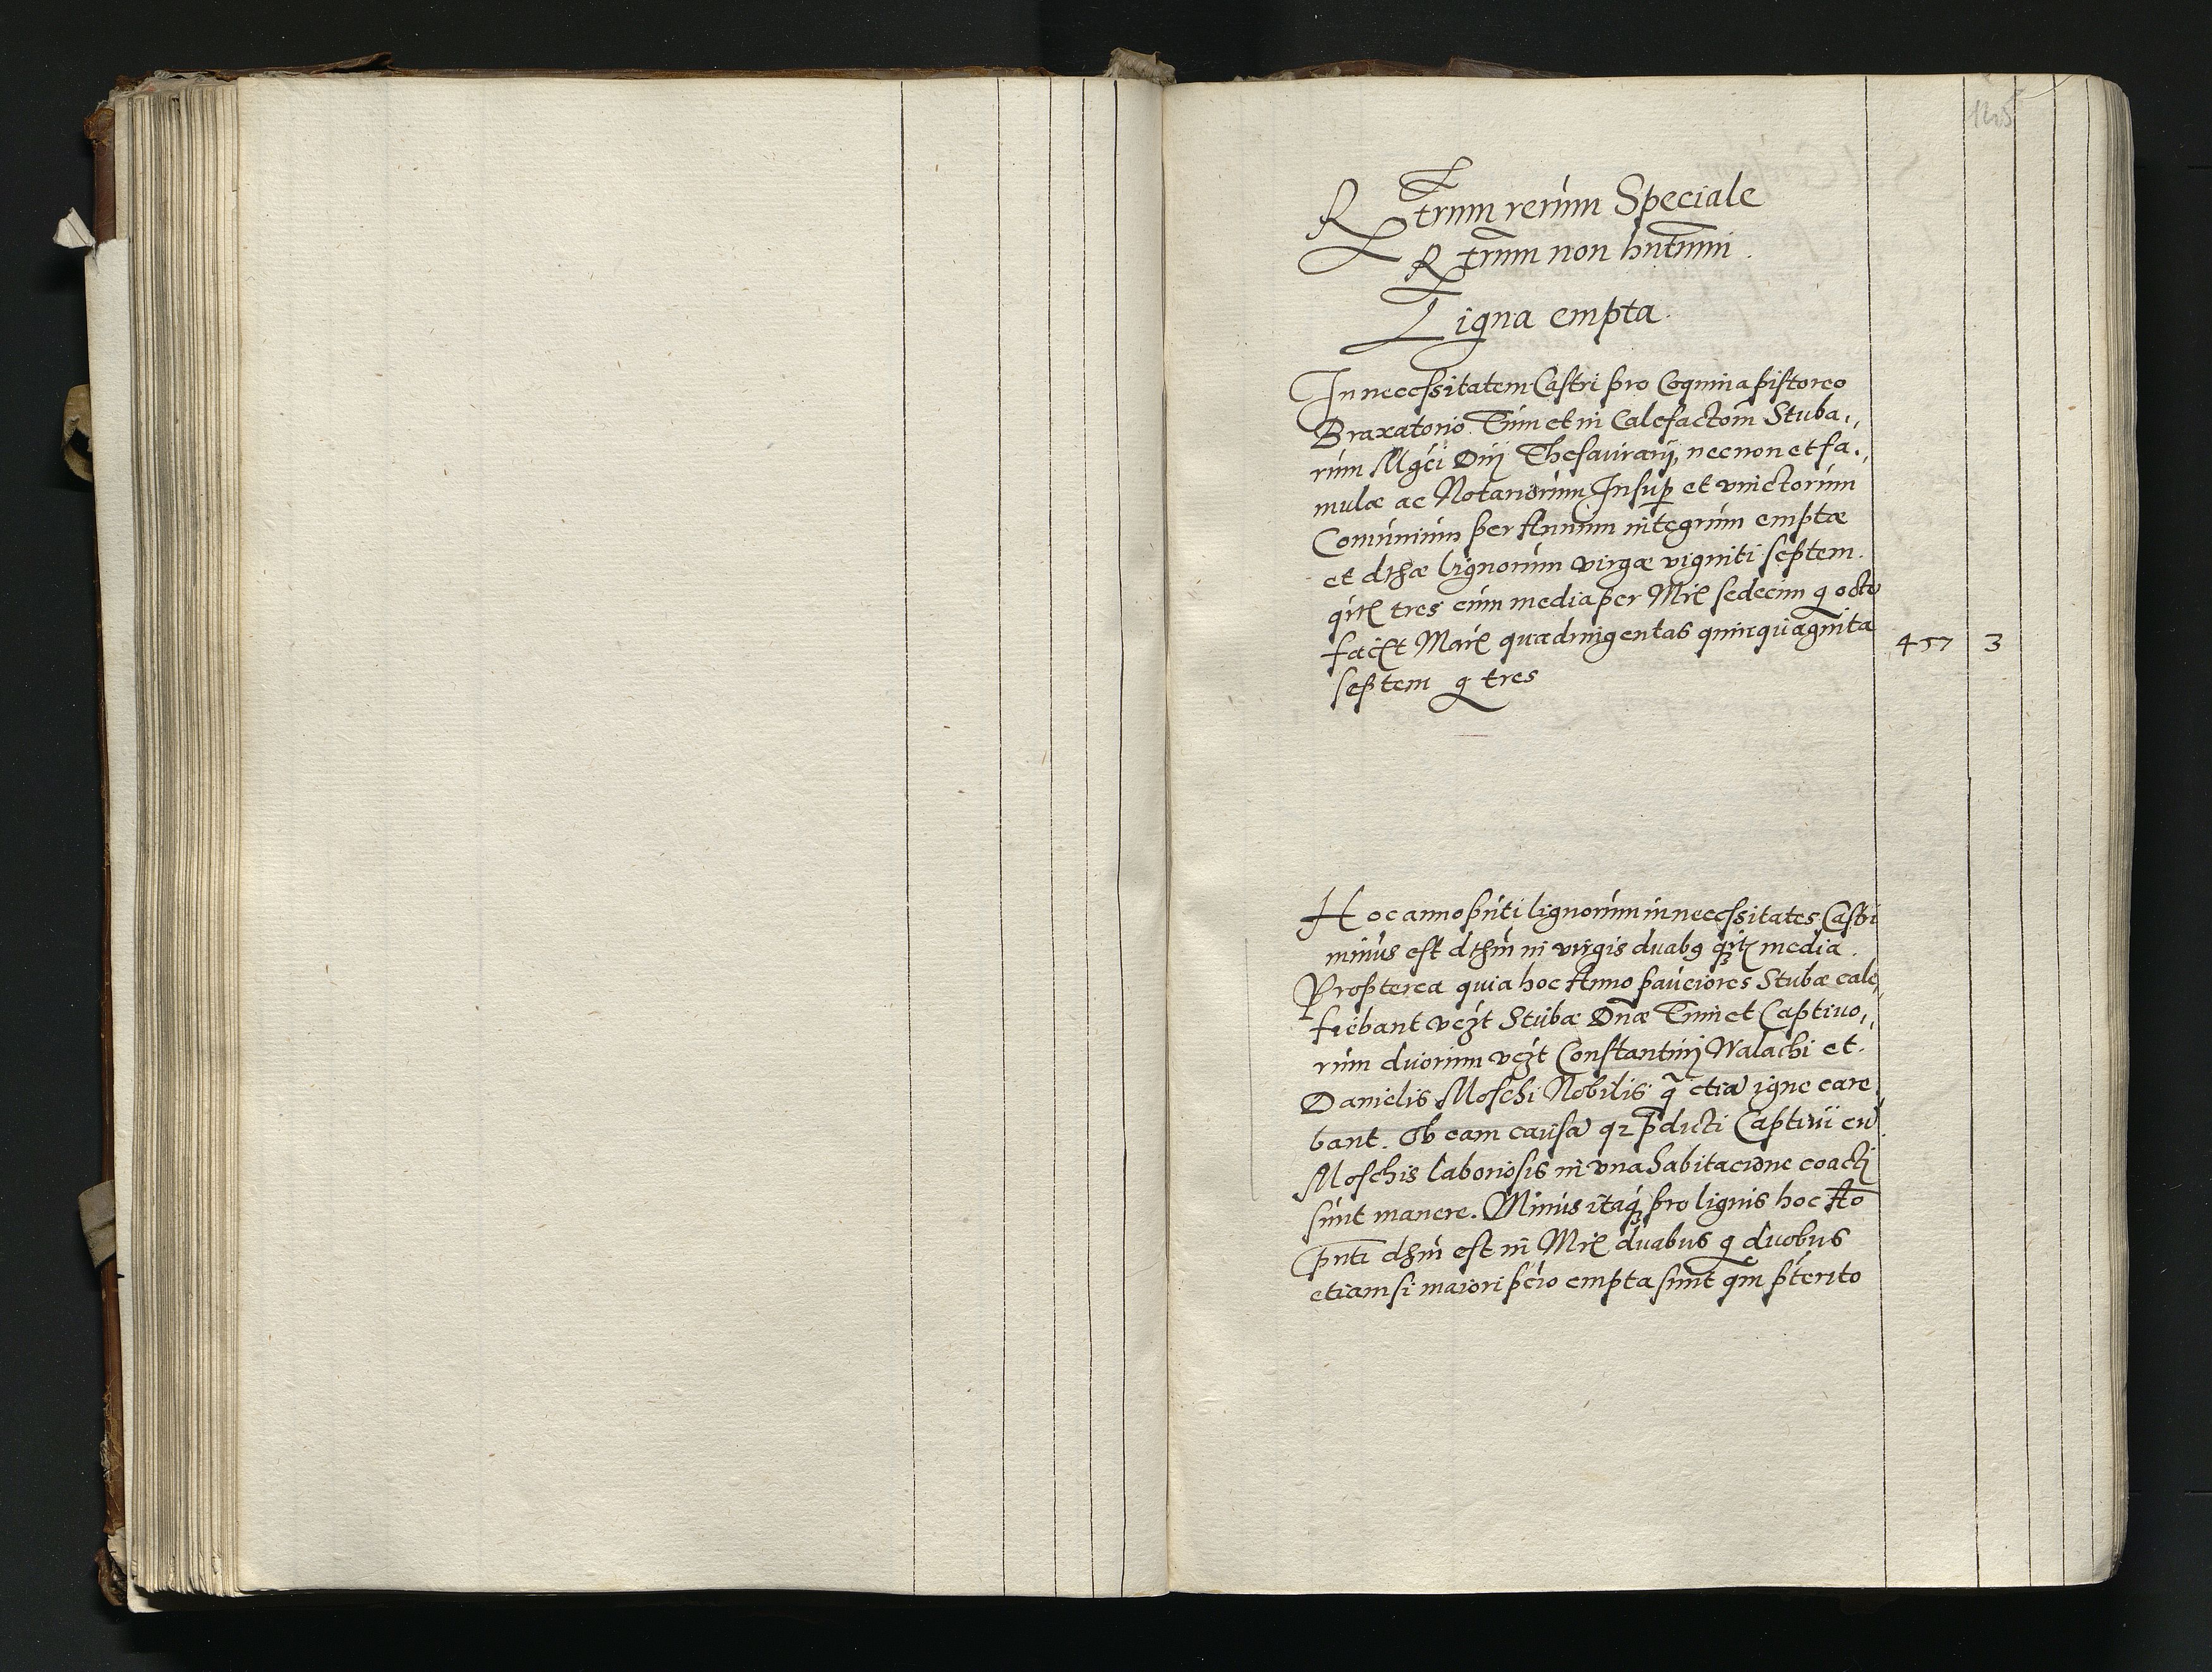 145
Rtrum rerum Speciale
Rtrum non hntium
Ligna empta
In necessitatem Castri pro Coquina pistoreo
Braxatorio Tum et in Calefactoem Stuba„
rum Mgci Dni Thesaurarij, necnon et fa„
mulæ ac Notariorum Insup et vinctorum
Comunium per Annum integrum emptæ
et dthæ lignorum virgæ viginti septem
qrtł tres cum media per Mrł sedecim g octo
facłt Marł quadringentas quinquaginta 457 3
septem g tres
Hoc anno pnti lignorum in necessitates Castri
minus est dthm in virgis duabꝯ qrtł media
Propterea quia hoc Anno pauciores Stubæ cale„
fiebant vczt Stubæ Dnæ Tum et Captivo„
rum duorum vczt Constantinj Walachi et
Danielis Moschi Nobilis q etia igne care
bant. Ob eam causa qz pdicti Captivi cu
Moschis laboriosis in vna habitacione coactj
sunt manere. Minus itaq pro lignis hoc Ao
pnti dthm est in Mrł duabus g duobus
etiam si maiori pcio empta sunt qm pterito